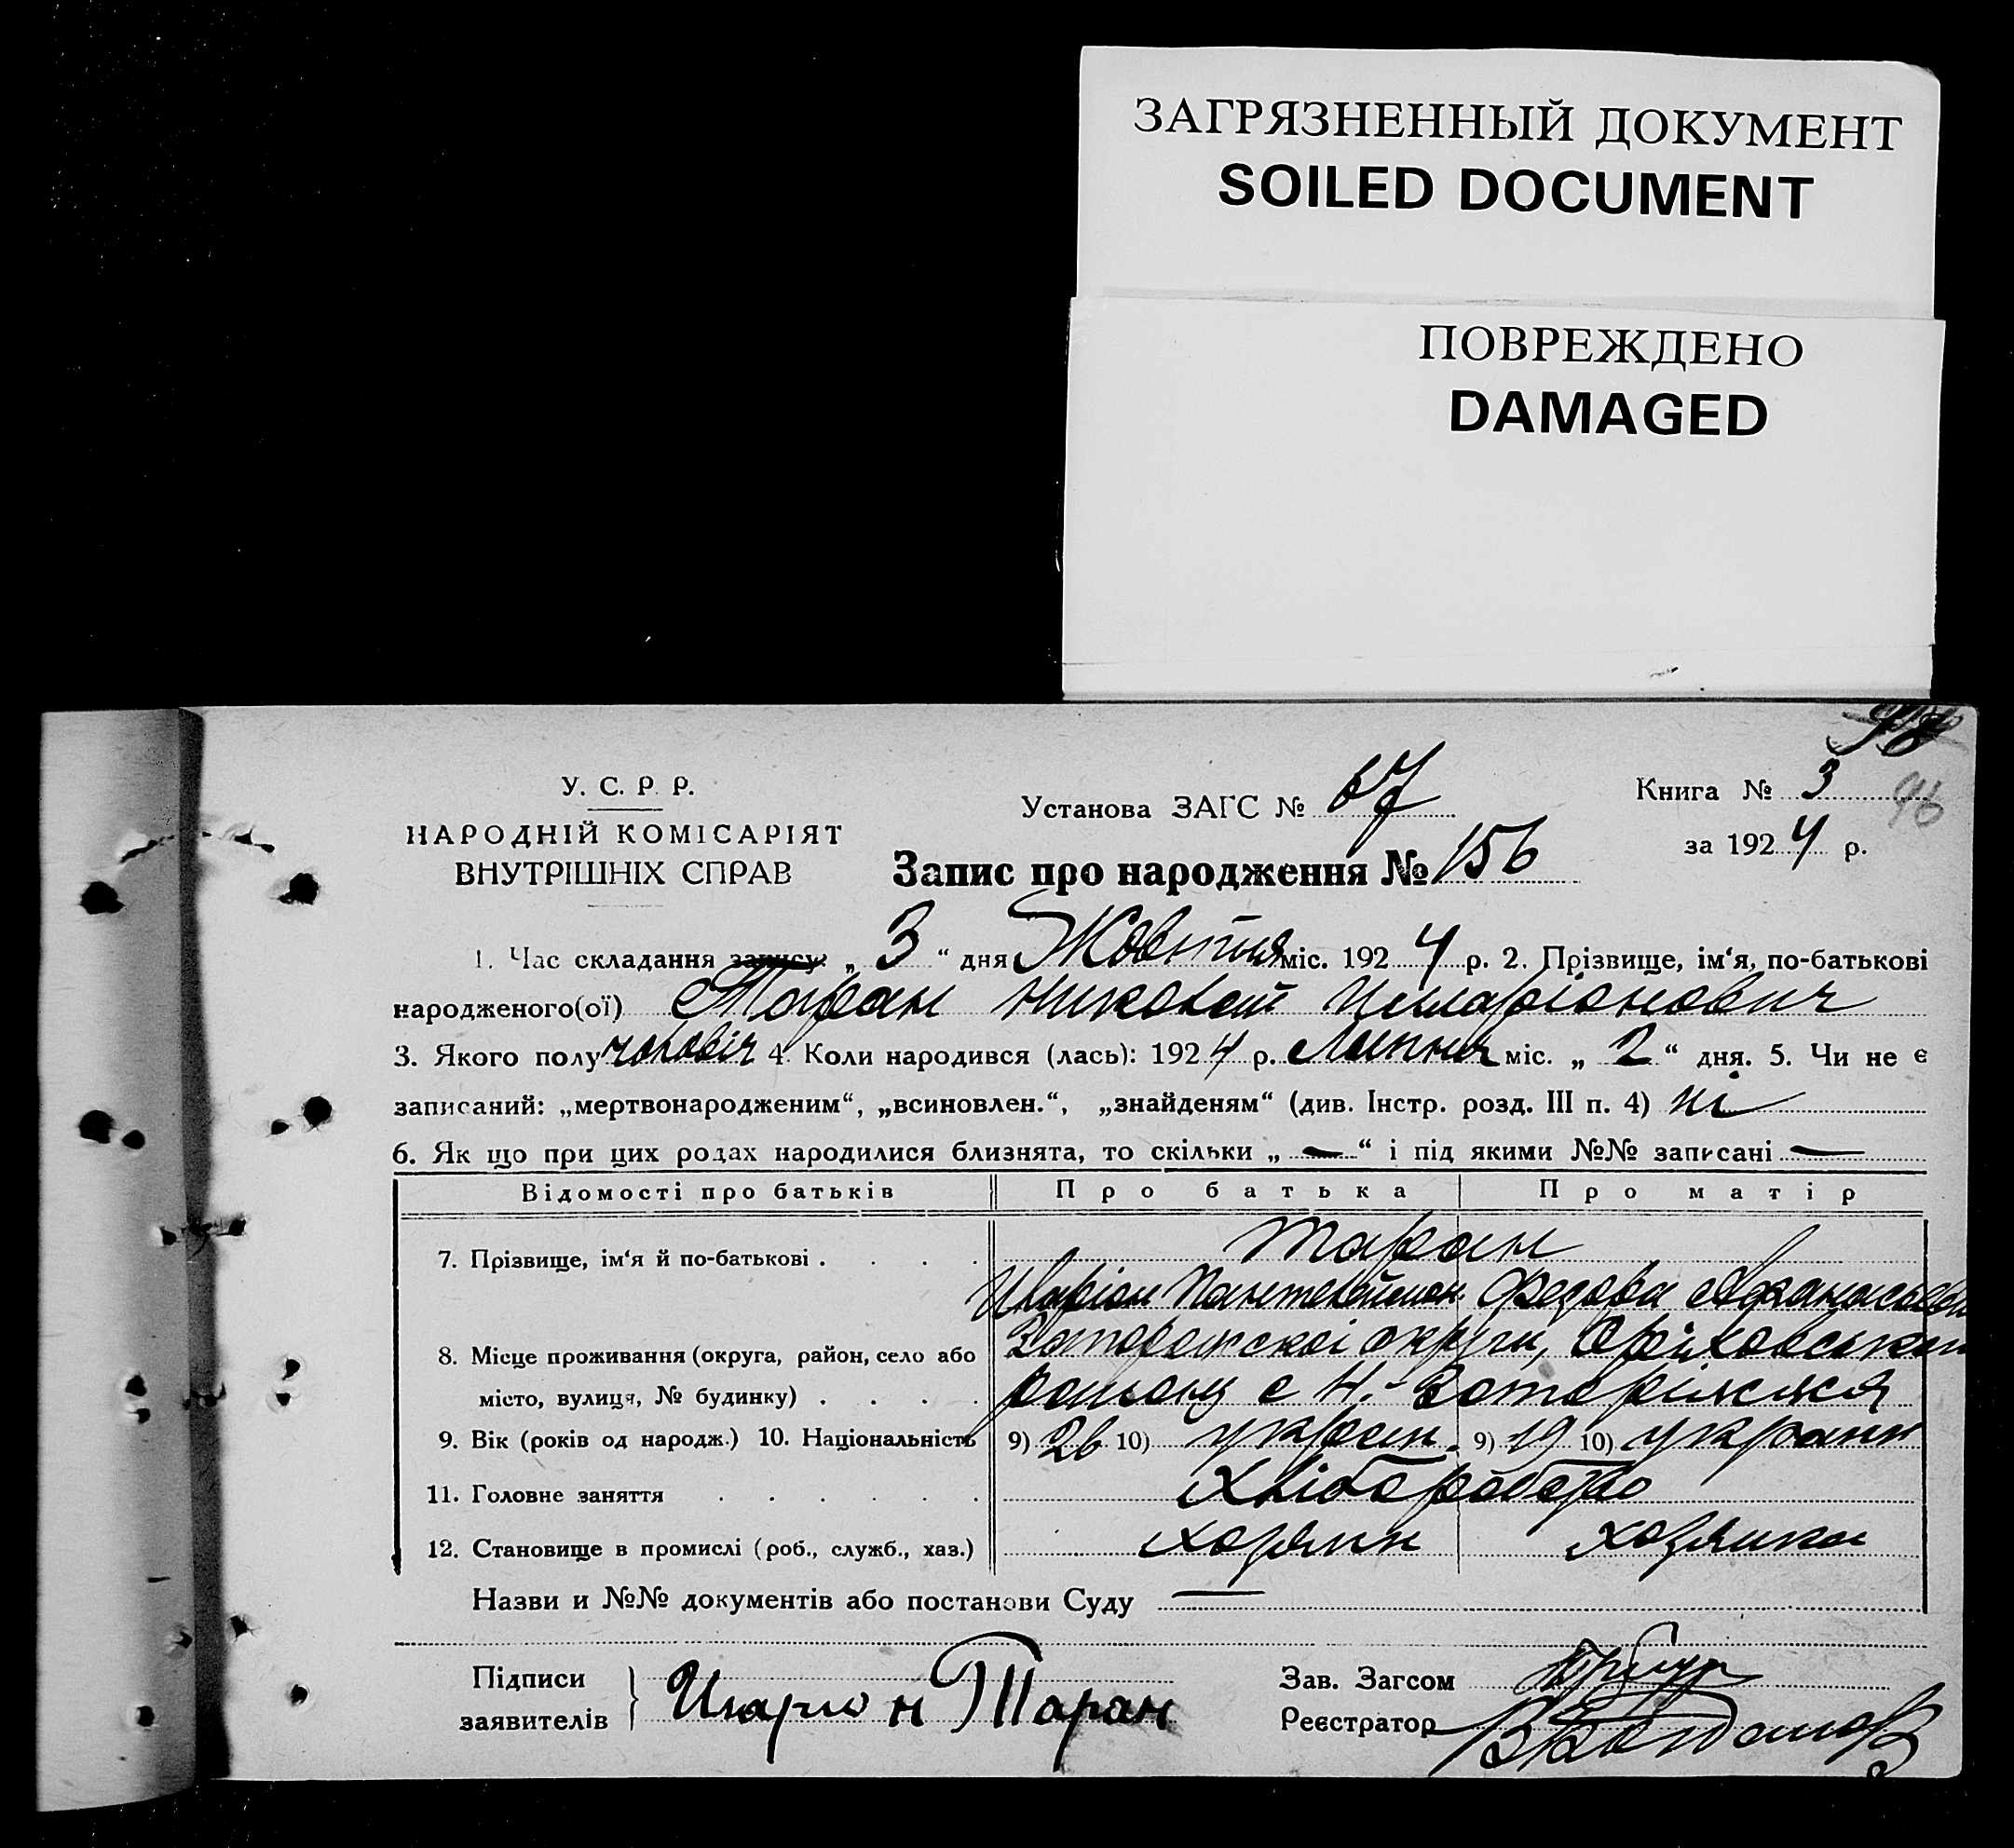 ЗАГРЯЗНЕННЫЙ ДОКУМЕНТ
SOILED DOCUMENT
ПОВРЕЖДЕНО
DAMAGED
У. С. Р. Р.
НАРОДНІЙ КОМІСАРІЯТ
ВНУТРІШНІХ СПРАВ
Установа ЗАГС № 67
Книга № 3
96
за 1924 р.
Запис про народження № 156
1. Час складання запису: „ 3 “ дня Жовтня міс. 1924 р. 2. Прізвище, ім‘я, по-батькові
народженого(ої) Таран Николай Иларіонович
3. Якого полу чоловіч 4. Коли народився (лась): 1924 р. Липня міс. „ 2 “ дня. 5. Чи не є
записаний: „мертвонародженим“, „всиновлен.“, „знайденям“ (див. Інстр. розд. III п. 4) ні
6. Як що при цих родах народилися близнята, то скільки „ — “ і під якими №№ записані —
Відомості про батьків Про батька Про матір
7. Прізвище, ім‘я й по-батькові . . . . Таран
Иларіон Пантелеймон. Федора
8. Місце проживання (округа, район, село або Запорожскої округи,
місто, вулиця, № будинку) . . . . району с Н.-Запоріжжя
9. Вік (років од народж.) 10. Національність 9) 26 10) украин. 9) 19 10) украин
11. Головне заняття . . . . . . Хліборобство
12. Становище в промислі (роб., служб., хаз.) хозяин хозяйка
Назви и №№ документів або постанови Суду —
Підписи
заявителів
Иларион Таран
Зав. Загсом
Реєстратор